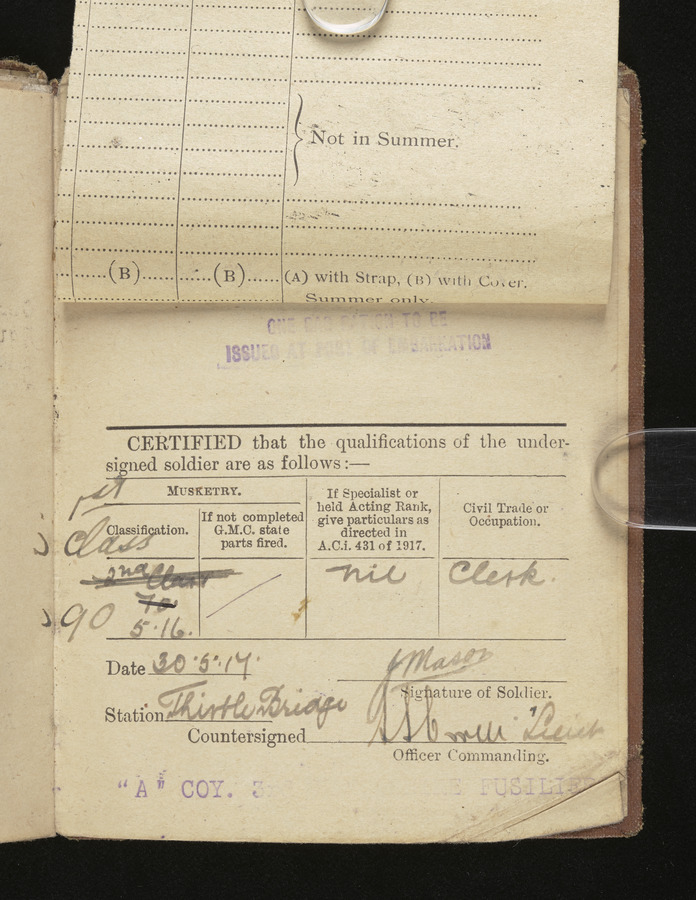 Not in Summer.
(B) (B) (A) with Strap, (B) with Cover.
Summer only.
TO BE
ISSUED AT PORT OF EMBARKATION
CERTIFIED that the qualifications of the under-
signed soldier are as follows:—
1st
Class
MUSKETRY.
Classification.
If not completed
G.M.C. state
parts fired.
If Specialist or
held Acting Rank,
give particulars as
directed in
A.C.i. 431 of 1917.
Civil Trade or
Occupation.
2nd Class
nil
Clerk.
90
5.16.
Date 30.5.17.
J Mason
Signature of Soldier.
Station Thirtle Bridge
Countersigned Lieut
Officer Commanding.
"A" COY. 3 FUSILIE